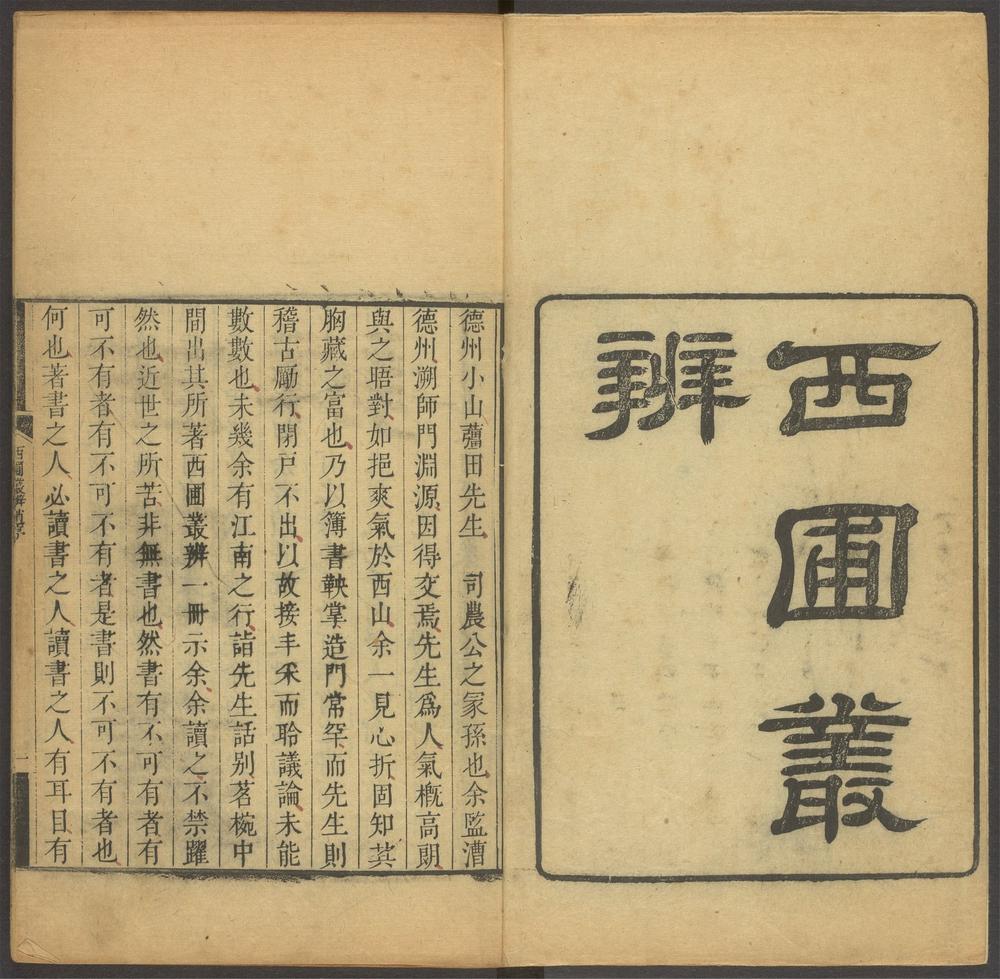 西圃叢
辨
德州小山薑田先生　司農公之冢孫也余監漕
德州溯師門淵源因得交焉先生爲人氣槪高朗
與之晤對如挹爽氣於西山余一見心折固知其
胸藏之富也乃以簿書鞅掌造門常罕而先生則
稽古勵行閉戸不出以故接丰采而聆議論未能
數數也未幾余有江南之行詣先生話别茗椀中
間出其所著西圃叢辨一冊示余余讀之不禁躍
然也近世之所苦非無書也然書有不可有者有
可不有者有不可不有者是書則不可不有者也
何也著書之人必讀書之人讀書之人有耳目有
西圃叢辨
一